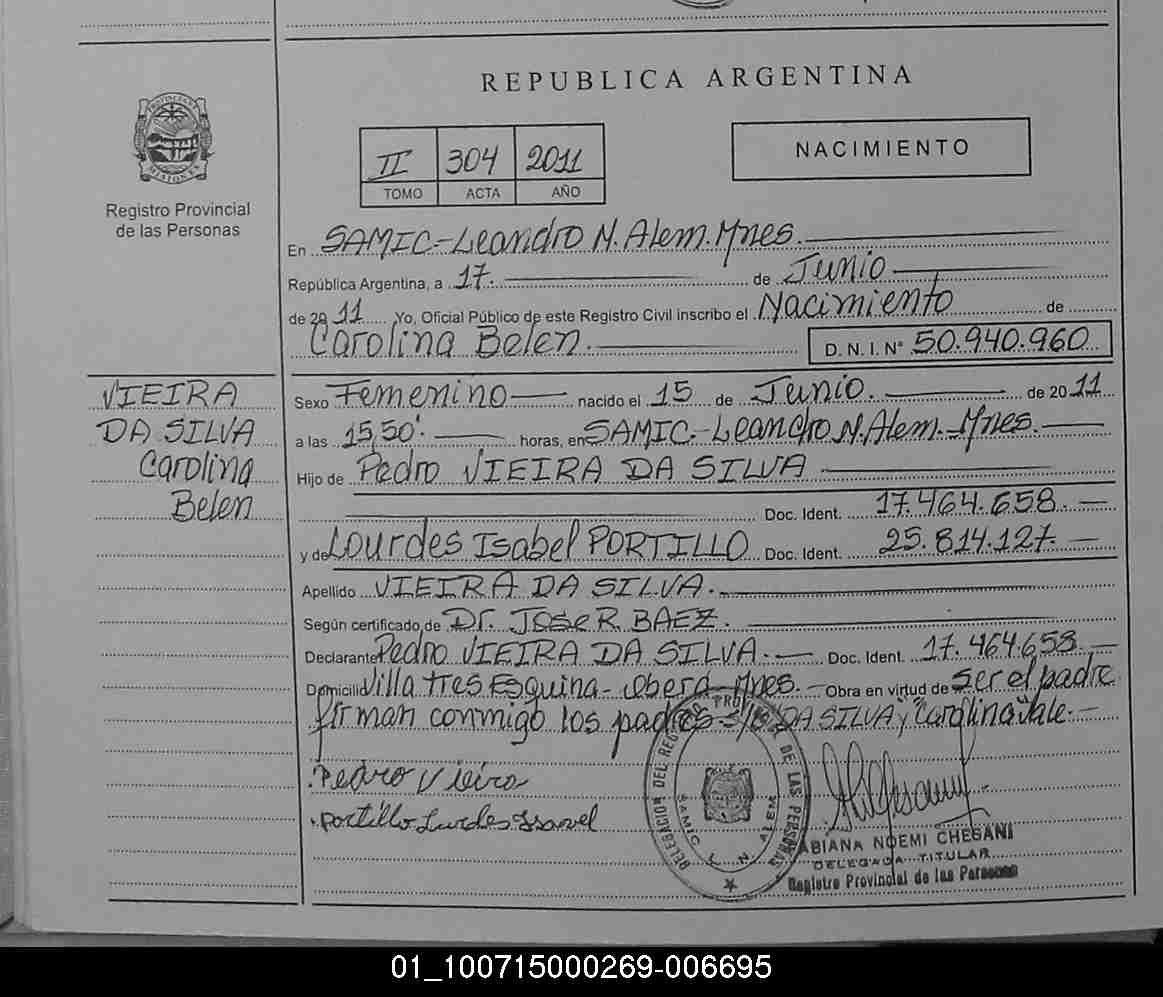 REPUBLICA ARGENTINA
PROVINCIA DE
MISIONES
Registro Provincial
de las Personas
II 304 2011
TOMO ACTA AÑO
NACIMIENTO
En SAMIC-Leandro N. Alem. Mnes.
República Argentina, a 17. de Junio
de 2011 Yo, Oficial Público de este Registro Civil inscribo el Nacimiento de
Carolina Belen. D.N.I. N° 50.940.960
VIEIRA
DA SILVA
Carolina
Belen
Sexo Femenino nacido el 15 de Junio. de 2011
a las 15,50'. horas, en SAMIC.-Leandro N. Alem. Mnes.
Hijo de Pedro VIEIRA DA SILVA
Doc. Ident. 17.464.658.
y de Lourdes Isabel PORTILLO Doc. Ident. 25.814.127.
Apellido VIEIRA DA SILVA.
Según certificado de Dr. JOSE R BAEZ.
Declarante Pedro VIEIRA DA SILVA. Doc. Ident. 17.464.658.
Domicilio Villa Tres Esquina- Obera- Mnes. Obra en virtud de ser el padre
firman conmigo los padres- S/B "DA SILVA" y "Carolina" Vale.-
Pedro Vieira
Portillo Lurdes Isavel
DELEGACION DEL REGISTRO PROVINCIAL DE LAS PERSONAS
SAMIC L. N. ALEM
FABIANA NOEMI CHESANI
DELEGADA TITULAR
Registro Provincial de las Personas
01_100715000269-006695